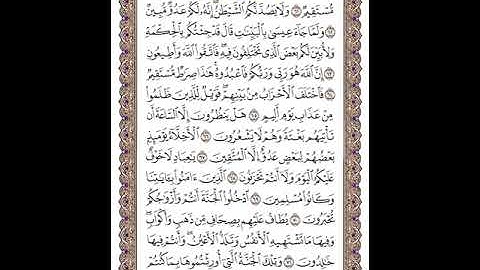 مُّسْتَقِيمٌ ٦١ وَلَا يَصُدَّنَّكُمُ ٱلشَّيْطَٰنُ إِنَّهُۥ لَكُمْ عَدُوٌّ مُّبِينٌ
٦٢ وَلَمَّا جَآءَ عِيسَىٰ بِٱلْبَيِّنَٰتِ قَالَ قَدْ جِئْتُكُم بِٱلْحِكْمَةِ
وَلِأُبَيِّنَ لَكُم بَعْضَ ٱلَّذِى تَخْتَلِفُونَ فِيهِ ۖ فَٱتَّقُوا۟ ٱللَّهَ وَأَطِيعُونِ
٦٣ إِنَّ ٱللَّهَ هُوَ رَبِّى وَرَبُّكُمْ فَٱعْبُدُوهُ ۚ هَٰذَا صِرَٰطٌ مُّسْتَقِيمٌ
٦٤ فَٱخْتَلَفَ ٱلْأَحْزَابُ مِنۢ بَيْنِهِمْ ۖ فَوَيْلٌ لِّلَّذِينَ ظَلَمُوا۟
مِنْ عَذَابِ يَوْمٍ أَلِيمٍ ٦٥ هَلْ يَنظُرُونَ إِلَّا ٱلسَّاعَةَ أَن
تَأْتِيَهُم بَغْتَةً وَهُمْ لَا يَشْعُرُونَ ٦٦ ٱلْأَخِلَّآءُ يَوْمَئِذٍۭ
بَعْضُهُمْ لِبَعْضٍ عَدُوٌّ إِلَّا ٱلْمُتَّقِينَ ٦٧ يَٰعِبَادِ لَا خَوْفٌ
عَلَيْكُمُ ٱلْيَوْمَ وَلَآ أَنتُمْ تَحْزَنُونَ ٦٨ ٱلَّذِينَ ءَامَنُوا۟ بِـَٔايَٰتِنَا
وَكَانُوا۟ مُسْلِمِينَ ٦٩ ٱدْخُلُوا۟ ٱلْجَنَّةَ أَنتُمْ وَأَزْوَٰجُكُمْ
تُحْبَرُونَ ٧٠ يُطَافُ عَلَيْهِم بِصِحَافٍ مِّن ذَهَبٍ وَأَكْوَابٍ ۖ
وَفِيهَا مَا تَشْتَهِيهِ ٱلْأَنفُسُ وَتَلَذُّ ٱلْأَعْيُنُ ۖ وَأَنتُمْ فِيهَا
خَٰلِدُونَ ٧١ وَتِلْكَ ٱلْجَنَّةُ ٱلَّتِىٓ أُورِثْتُمُوهَا بِمَا كُنتُمْ